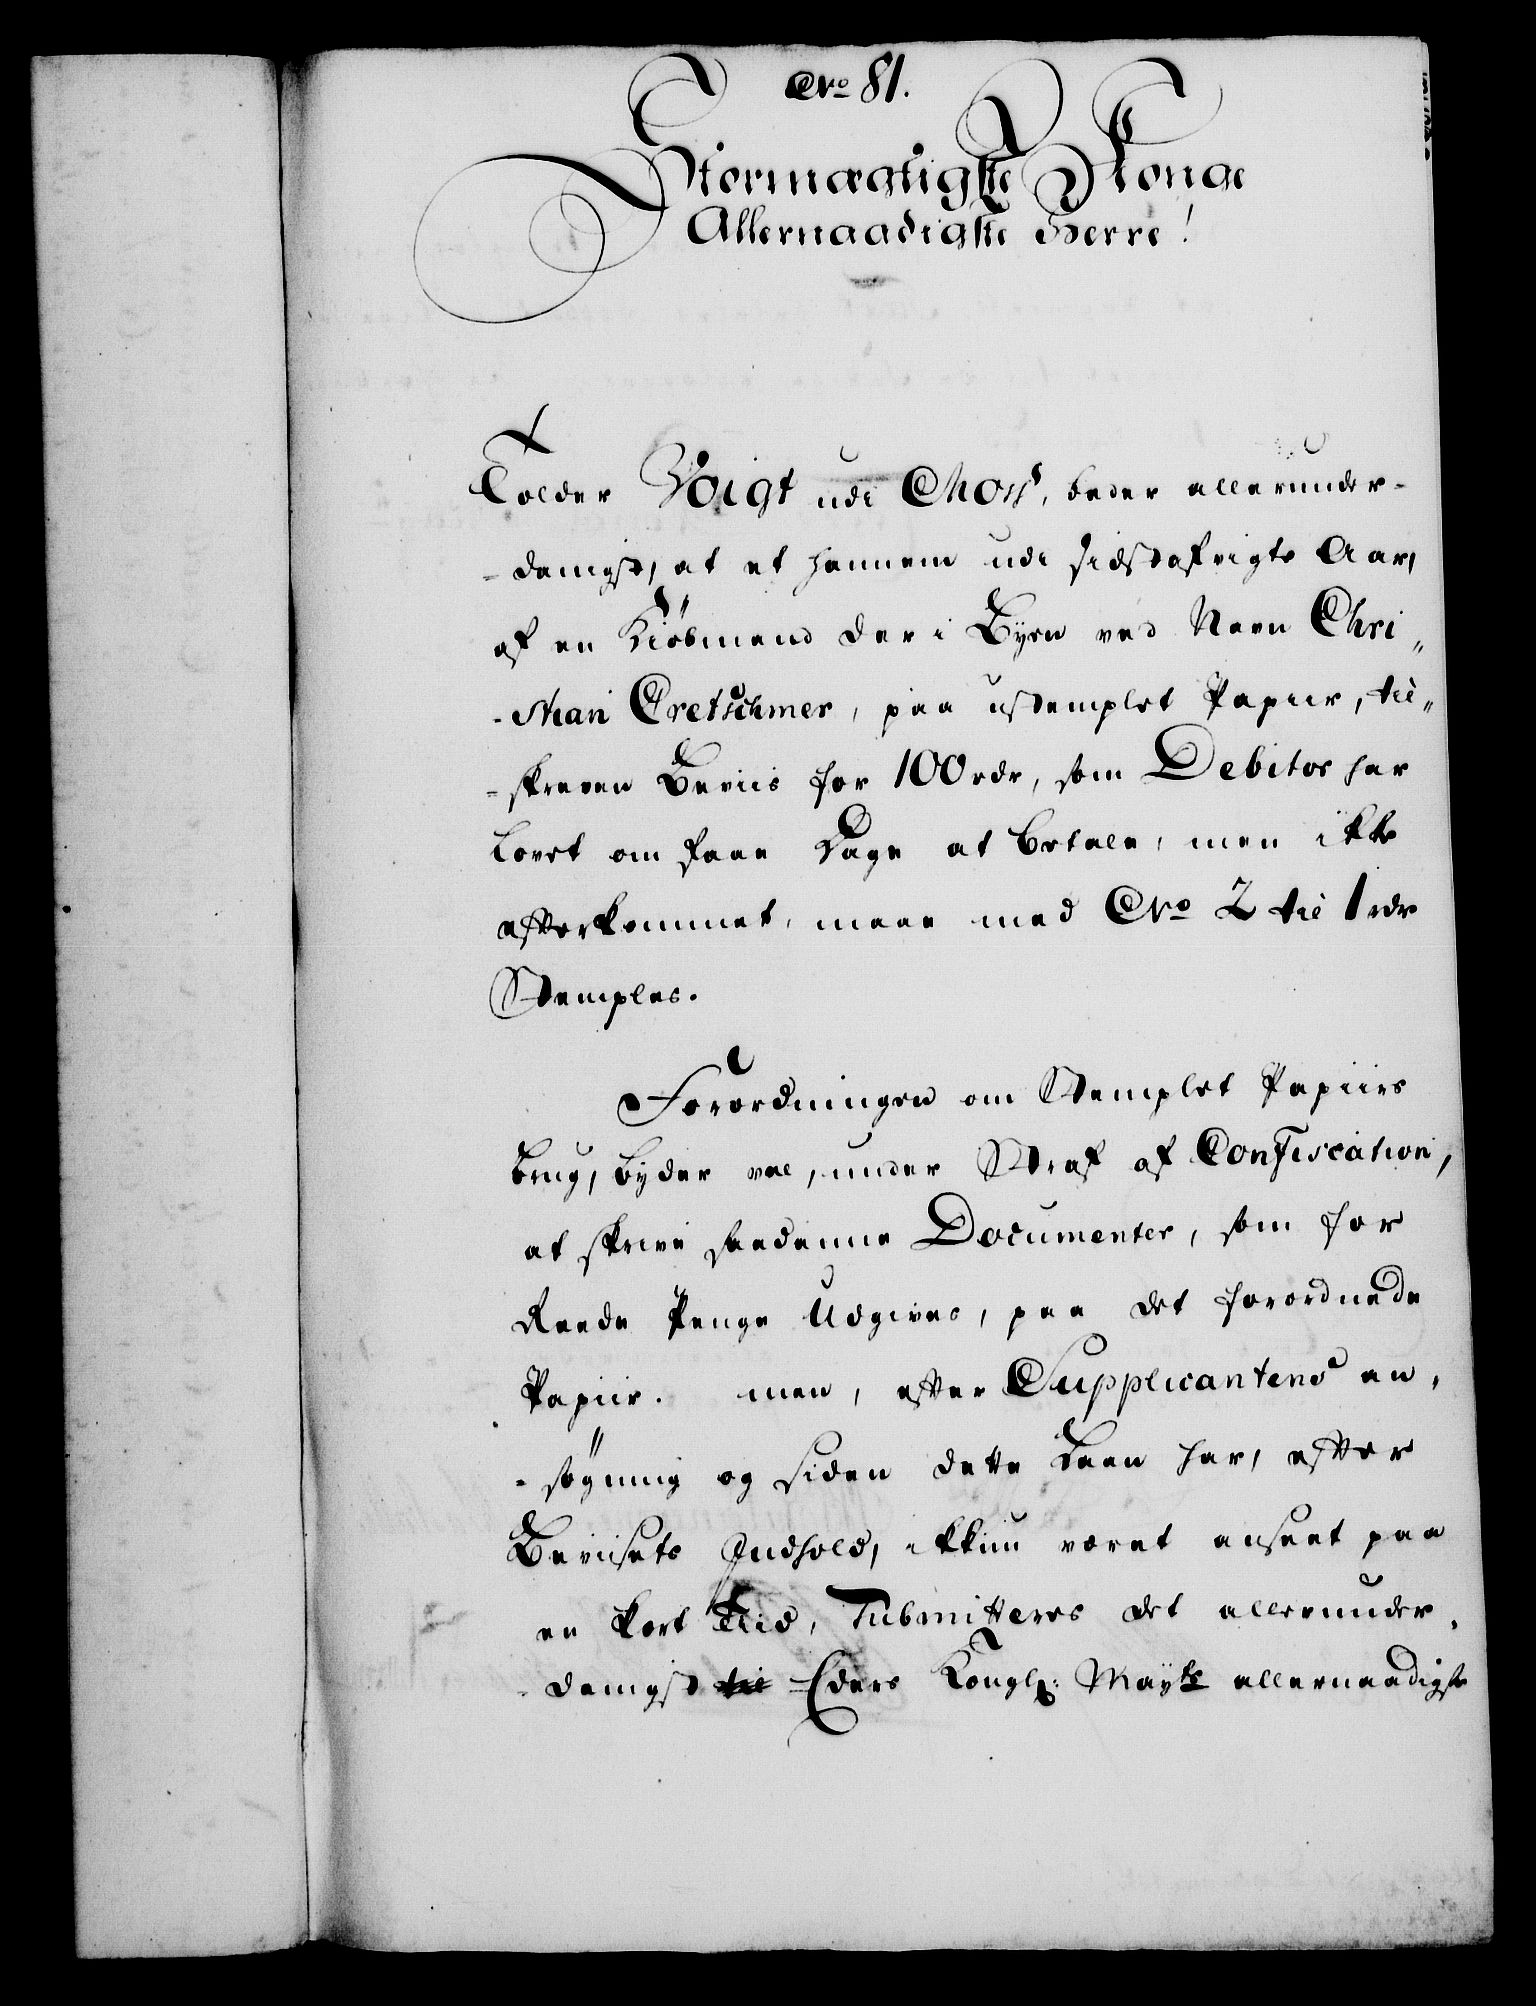 No 81.
Stormægtigste Konge
Allernaadigste Herre!
Tolder Voigt udi Moss, beder allerunder-
-danigst, at et hannem udi sidstafvigte Aar,
af en Kiöbmand der i Byen ved Navn Chri„
-stian Cretschmer, paa ustemplet Papiir, til„
-skreven Beviis for 100 rdr, som Debitor har
lovet om faae Dage at betale, men ikke
efterkommet, maae med No 2 til 1 rdr
Stemples.
Forordningen om Stemplet Papiirs
brug, byder vel, under Straf af Confiscation,
at skrive saadanne Documenter, som for
Reede Penge Udgives, paa det forordnede
Papiir. men, efter Supplicantens an,
-søgning og siden dette Laan har, efter
Beviisets Indhold, ikkun været anseet paa
en kort Tiid, Submitteres det allerunder,
-danigst til Eders Kongl: Mayts allernaadigste